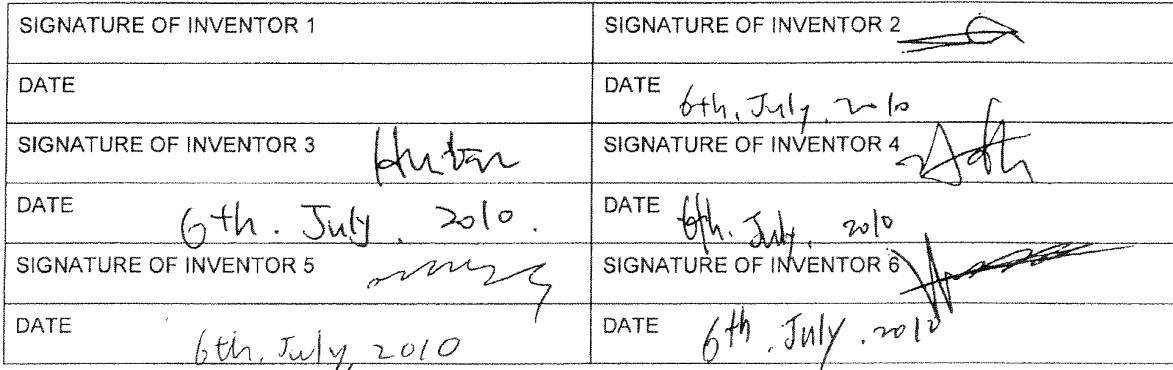 SIGNATURE OF INVENTOR 1
SIGNATURE OF INVENTOR 2
DATE
DATE 6th, July, 2010
SIGNATURE OF INVENTOR 3
SIGNATURE OF INVENTOR 4
DATE 6th. July. 2010.
DATE 6th. July, 2010
SIGNATURE OF INVENTOR 5
SIGNATURE OF INVENTOR 6
DATE 6th, July, 2010
DATE 6th. July. 2010